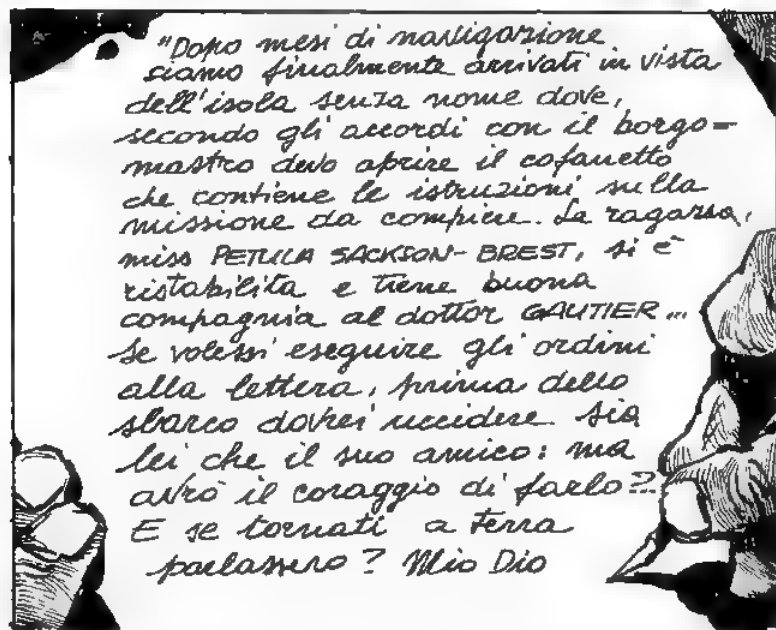 "Dopo mesi di navigazione
siamo finalmente arrivati in vista
dell'isola senza nome dove,
secondo gli accordi con il borgo=
mastro devo aprire il cofanetto
che contiene le istruzioni sulla
missione da compiere. La ragazza,
miss PETULA SACKSON-BREST, si è
ristabilita e tiene buona
compagnia al dottor GAUTIER...
se volessi eseguire gli ordini
alla lettera, prima dello
sbarco dovrei uccidere sia
lei che il suo amico: ma
avrò il coraggio di farlo?..
E se tornati a terra
parlassero? Mio Dio